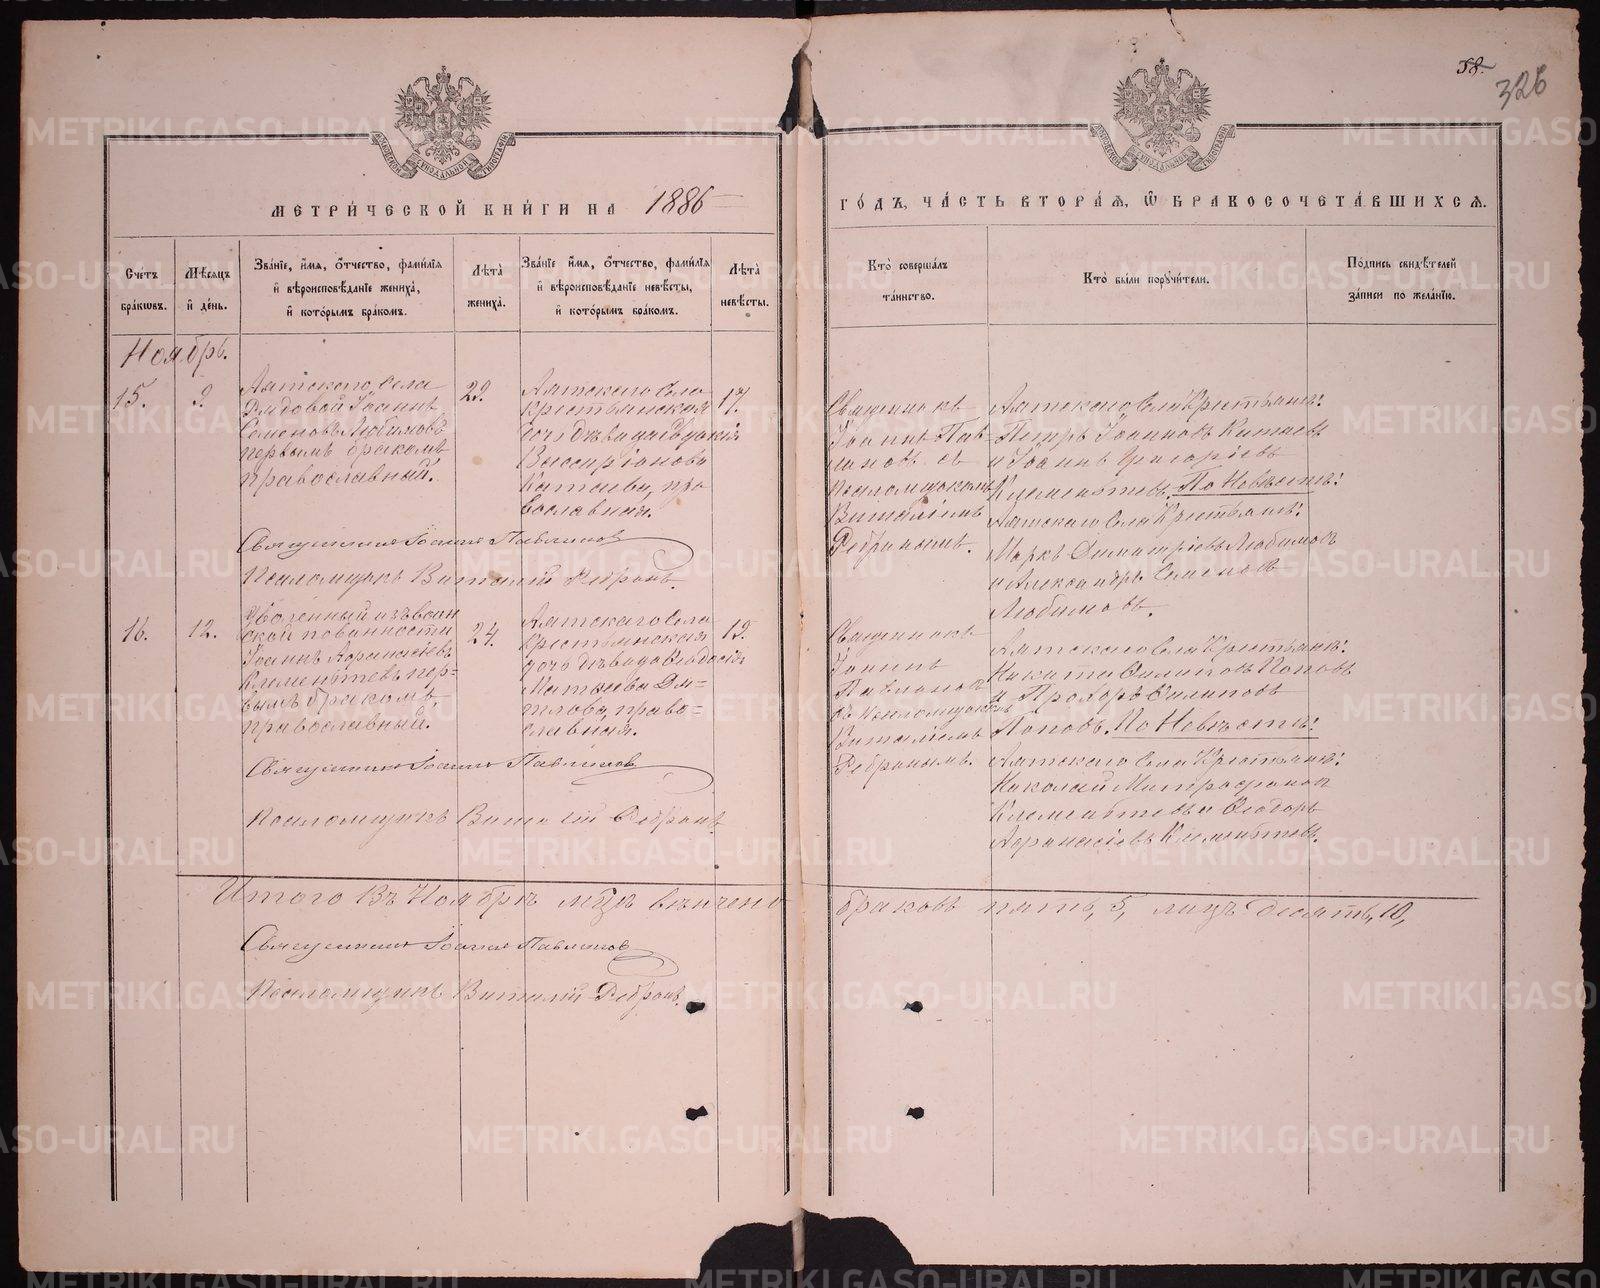 58.
326
МЕТРИ́ЧЕСКОЙ КНИ́ГИ НА 1886
ГО́ДЪ, ЧА́СТЬ ВТОРА́Я, Ѿ БРАКОСОЧЕТА́ВШИХСЯ.
Сче́тъ бра́кωвъ.
Мѣ́сяцъ и҆ де́нь.
Зва́нїе, и҆́мя, ѻ҆́тчество, фами́лїя
и҆ вѣроисповѣ́данїе жениха́,
и҆ кото́рымъ бра́комъ.
Лѣ́та жениха́.
Зва́нїе и҆́мя, ѻ҆́тчество, фами́лїя
и҆ вѣроисповѣ́данїе невѣ́сты,
и҆ кото́рымъ бра́комъ.
Лѣ́та невѣ́сты.
Кто̀ соверша́лъ
та́инство.
Кто̀ бы́ли порꙋчи́тели.
По́дпись свидѣ́телей
за́писи по жела́нїю.
Ноябрь.
15.
Аятскаго Села
Рядовой Іоаннъ
Семеновъ Любимовъ
первымъ бракомъ
православный.
Аятскаго Села
крестьянская
дочь дѣвица Евдокія
Виссаріонова
Катаева, пра
вославная.
17.
Священникъ
Іоаннъ Пав
линовъ съ
Псаломщикомъ
Виталіемъ
Ребринымъ.
Аятскаго Села Крестьяне:
Петръ Іоанновъ Катаевъ
и Іоаннъ Григоріевъ
Клементьевъ. По Невѣстѣ:
Аятскаго Села Крестьяне:
Маркъ Димитріевъ Любимовъ
и Александръ Семеновъ
Любимовъ.
Священникъ Іоаннъ Павлиновъ
Псаломщикъ Виталій Ребринъ.
16.
12.
Уволенный изъ воин
ской повинности
Іоаннъ Афанасіевъ
Клементьевъ пер=
вымъ бракомъ,
православный.
24.
Аятскаго Села
крестьянская
дочь дѣвица Ѳеодосія
Матѳеева Дя=
тлова, право=
славная.
19.
Священникъ
Іоаннъ
Павлиновъ
съ Псаломщикомъ
Виталіемъ
Ребринымъ.
Аятскаго Села Крестьяне:
Никита Филиповъ Поповъ
и Прохоръ Филиповъ
Поповъ. По Невѣстѣ:
Аятскаго Села Крестьяне:
Николай Митрофановъ
Клементьевъ и Ѳеодоръ
Афанасіевъ Клементьевъ.
Священникъ Іоаннъ Павлиновъ
Псаломщикъ Виталій Ребринъ
Итого въ Ноябрѣ мцѣ вѣнчено браковъ пять, 5, лицъ десять, 10,
Священникъ Іоаннъ Павлиновъ
Псаломщикъ Виталій Ребринъ
METRIKI.GASO-URAL.RU